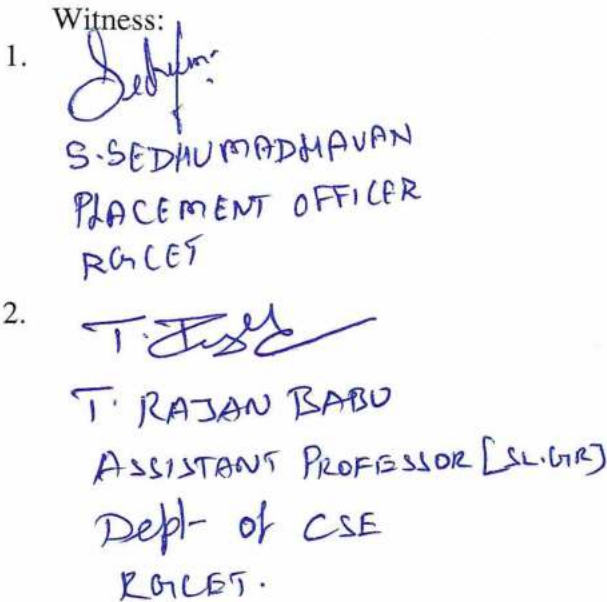 Witness:
1.
S. SEDHUMADHAVAN
PLACEMENT OFFICER
RGCET
2.
T. RAJAN BABU
ASSISTANT PROFESSOR [SL.GR]
Dept of CSE
RGCET.